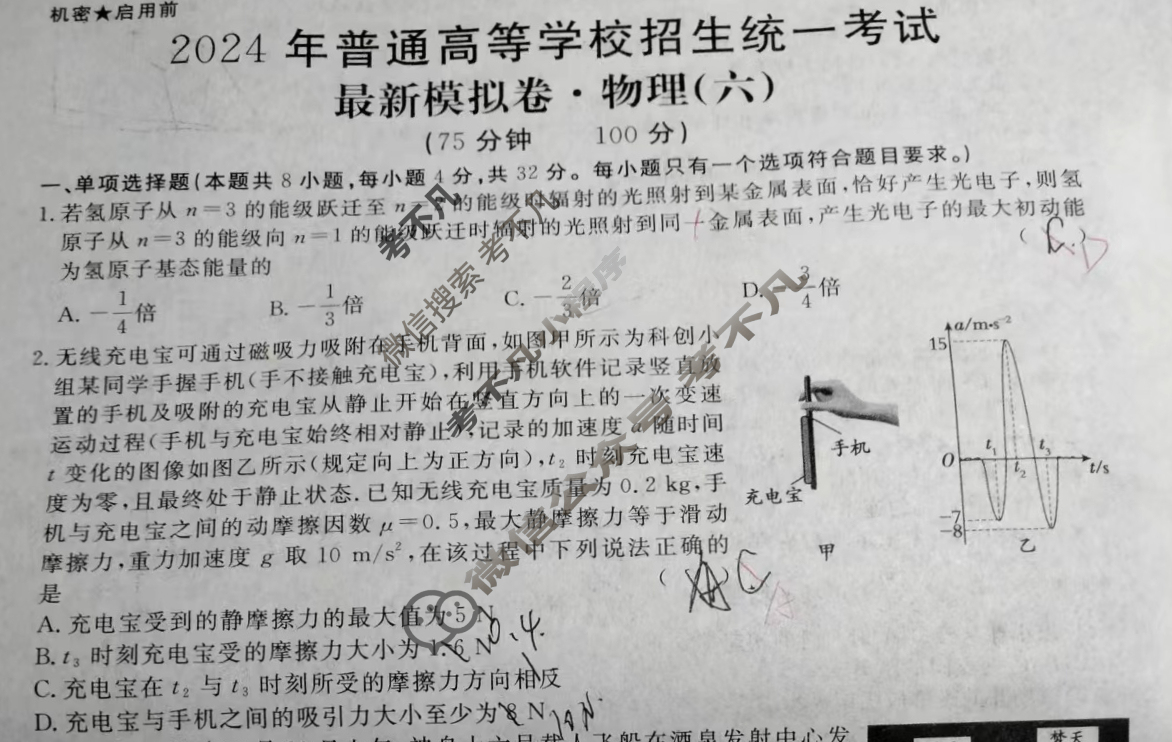 机密★启用前
2024 年普通高等学校招生统一考试
最新模拟卷·物理(六)
(75 分钟 100 分)
一、单项选择题(本题共 8 小题,每小题 4 分,共 32 分。每小题只有一个选项符合题目要求。)
1. 若氢原子从 n=3 的能级跃迁至 n= 的能级时辐射的光照射到某金属表面,恰好产生光电子,则氢
原子从 n=3 的能级向 n=1 的能级跃迁时辐射的光照射到同一金属表面,产生光电子的最大初动能
为氢原子基态能量的 ( C. )
A. -1/4倍 B. -1/3倍 C. -2/3倍 D. 3/4倍
2. 无线充电宝可通过磁吸力吸附在手机背面,如图甲所示为科创小
组某同学手握手机(手不接触充电宝),利用手机软件记录竖直放
置的手机及吸附的充电宝从静止开始在竖直方向上的一次变速
运动过程(手机与充电宝始终相对静止),记录的加速度 a 随时间
t 变化的图像如图乙所示(规定向上为正方向),t₂ 时刻充电宝速
度为零,且最终处于静止状态.已知无线充电宝质量为 0.2 kg,手
机与充电宝之间的动摩擦因数 μ=0.5,最大静摩擦力等于滑动
摩擦力,重力加速度 g 取 10 m/s²,在该过程中下列说法正确的
是 ( A ) C
A. 充电宝受到的静摩擦力的最大值为 5 N
B. t₃ 时刻充电宝受的摩擦力大小为 1.6 N 0.4
C. 充电宝在 t₂ 与 t₃ 时刻所受的摩擦力方向相反
D. 充电宝与手机之间的吸引力大小至少为 8 N 10N.
手机
充电宝
甲
a/m·s⁻²
15
O
t₁
t₂
t₃
t/s
-7
-8
乙
考不凡
微信搜索 考不凡
考不凡小程序
微信公众号 考不凡
载人飞船在酒泉发射中心发
梦天